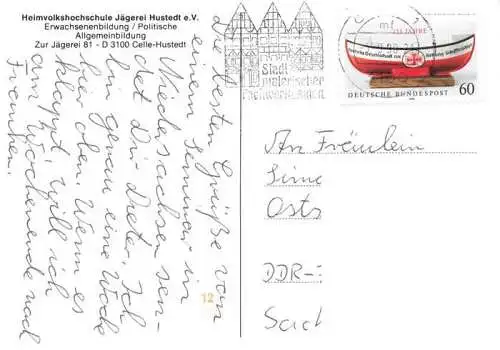 Heimvolkshochschule Jägerei Hustedt e.V.
Erwachsenenbildung / Politische
Allgemeinbildung
Zur Jägerei 81 - D 3100 Celle-Hustedt
Die besten Grüße von
einem Seminar in
Niedersachsen sen-
det Dir Dieter. Ich
bin genau eine Woche
hier oben. Wenn es
klappt, will ich
am Wochenende nach
Franken.
12
Stadt
malerischer
Fachwerkhäuser
125 JAHRE
Deutsche Gesellschaft zur Rettung Schiffbrüchiger
DEUTSCHE BUNDESPOST
60
An Fräulein
Sime
Osts
DDR-
Sach